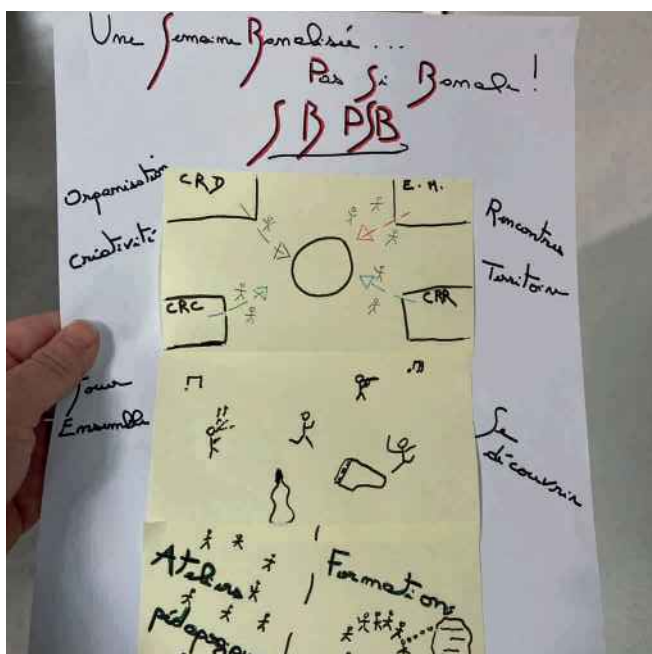 Une Semaine Banalisée ...
Pas Si Banale !
SB PSB
Organisation
Créativité
CRD
E.M.
Rencontres
Territoire
CRC
CRR
Jouer
Ensemble
Se
découvrir
Ateliers
Formation